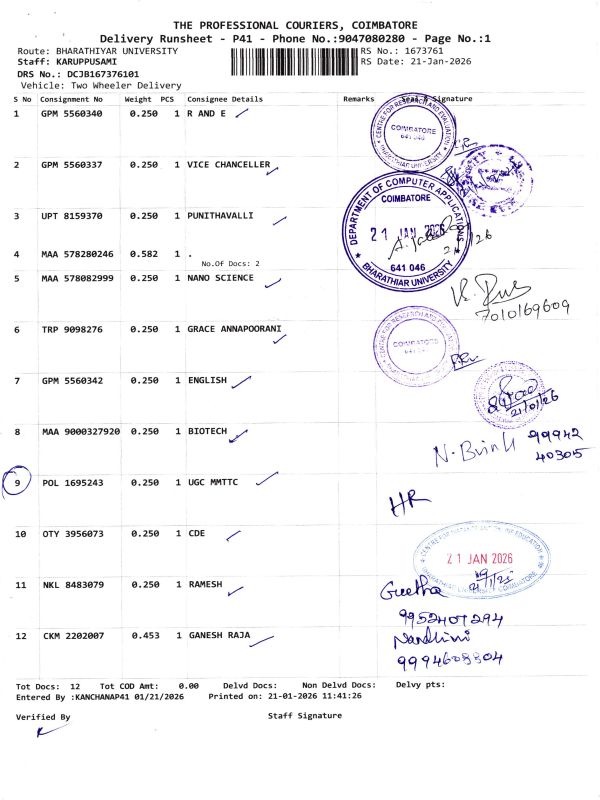 THE PROFESSIONAL COURIERS, COIMBATORE
Delivery Runsheet - P41 - Phone No.:9047080280 - Page No.:1
Route: BHARATHIYAR UNIVERSITY RS No.: 1673761
Staff: KARUPPUSAMI RS Date: 21-Jan-2026
DRS No.: DCJB167376101
Vehicle: Two Wheeler Delivery
S No Consignment No Weight PCS Consignee Details Remarks Seal & Signature
1 GPM 5560340 0.250 1 R AND E
CENTRE FOR RESEARCH AND EVALUATION
COIMBATORE
641 046
BHARATHIAR UNIVERSITY
2 GPM 5560337 0.250 1 VICE CHANCELLER
3 UPT 8159370 0.250 1 PUNITHAVALLI
DEPARTMENT OF COMPUTER APPLICATIONS
COIMBATORE
21 JAN 2026
641 046
BHARATHIAR UNIVERSITY
4 MAA 578280246 0.582 1 .
No.Of Docs: 2
5 MAA 578082999 0.250 1 NANO SCIENCE
7010169609
6 TRP 9098276 0.250 1 GRACE ANNAPOORANI
COIMBATORE
7 GPM 5560342 0.250 1 ENGLISH
21/01/26
8 MAA 9000327920 0.250 1 BIOTECH
99942
40305
9 POL 1695243 0.250 1 UGC MMTTC
HR
10 OTY 3956073 0.250 1 CDE
21 JAN 2026
11 NKL 8483079 0.250 1 RAMESH
Geetha
9952407294
12 CKM 2202007 0.453 1 GANESH RAJA
Nandhini
9994608804
Tot Docs: 12 Tot COD Amt: 0.00 Delvd Docs: Non Delvd Docs: Delvy pts:
Entered By :KANCHANAP41 01/21/2026 Printed on: 21-01-2026 11:41:26
Verified By Staff Signature